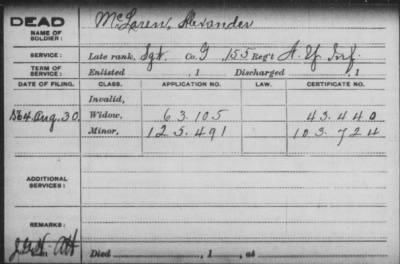 DEAD
NAME OF SOLDIER: McLaren, Alexander
SERVICE: Late rank, Sgt. Co. G 155 Reg't N.Y. Inf.
TERM OF SERVICE: Enlisted , 1 Discharged , 1
DATE OF FILING. CLASS. APPLICATION NO. LAW. CERTIFICATE NO.
Invalid,
1864 Aug. 30. Widow, 63.105 43.440
Minor, 125.491 103.724
ADDITIONAL SERVICES:
REMARKS:
Att Died , 1 , at